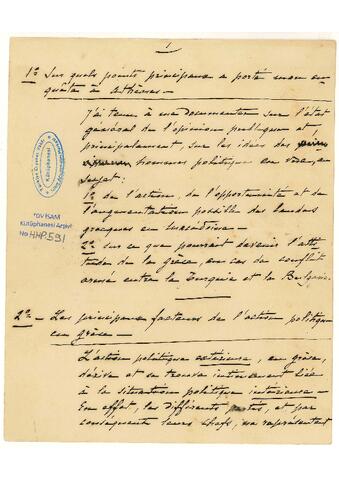 1
1º Sur quels points principaux a porté mon en-
quête à Athènes —
J'ai tenu à me documenter sur l'état
général de l'opinion publique et,
principalement, sur les idées des
hommes politique en vue, au
sujet:
1º de l'action, de l'opportunité et de
l'augmentation possible des bandes
grecques en Macédoine —
2º sur ce que pourrait devenir l'atti-
tude de la Grèce, en cas de conflit
armé entre la Turquie et la Bulgarie.
2º — Les principaux facteurs de l'action politique
en Grèce —
L'action politique extérieure, en Grèce,
dérive et se trouve intimement liée
à la situation politique intérieure —
En effet, les différents partis, et par
conséquent leurs chefs, ne représentent
TDV İSAM
Kütüphanesi Arşivi
No HHP.591